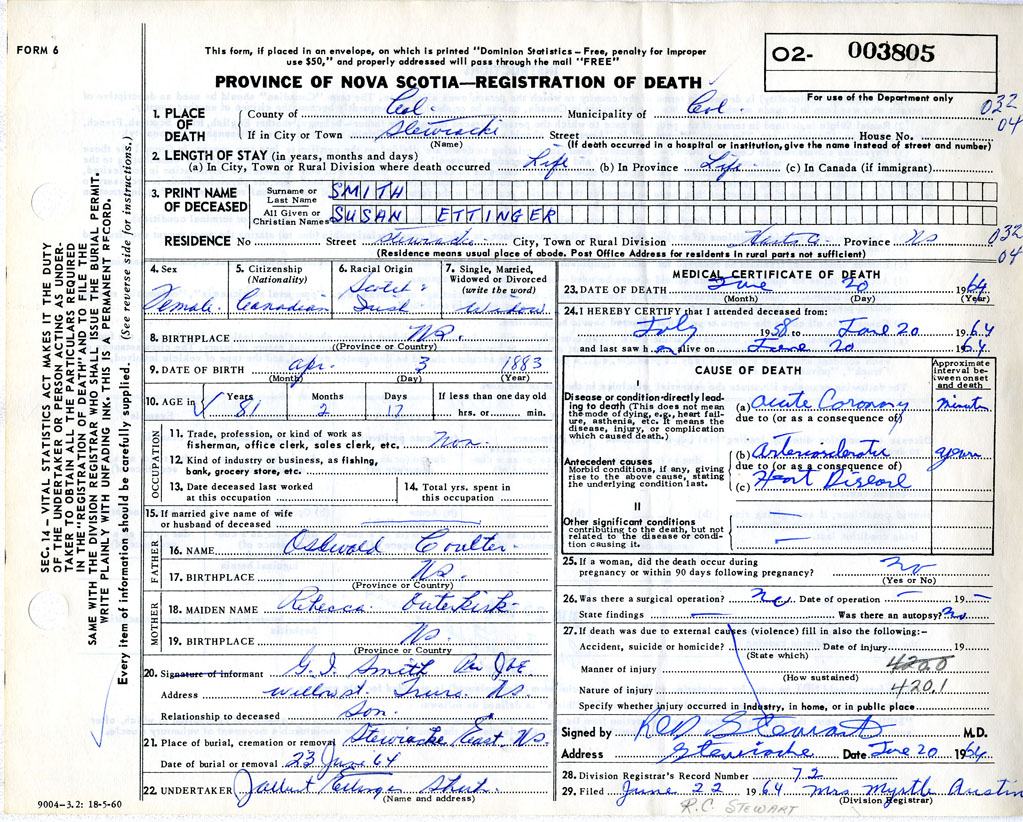 FORM 6
This form, if placed in an envelope, on which is printed "Dominion Statistics – Free, penalty for improper
use $50," and properly addressed will pass through the mail "FREE"
PROVINCE OF NOVA SCOTIA—REGISTRATION OF DEATH
O2- 003805
For use of the Department only
032
04
1. PLACE OF DEATH
County of Col. Municipality of Col
If in City or Town Stewiacki Street House No.
(Name) (If death occurred in a hospital or institution, give the name instead of street and number)
2. LENGTH OF STAY (in years, months and days)
(a) In City, Town or Rural Division where death occurred Life (b) In Province Life (c) In Canada (if immigrant)
3. PRINT NAME OF DECEASED
Surname or Last Name SMITH
All Given or Christian Names SUSAN ETTINGER
RESIDENCE No Street Stewiacke City, Town or Rural Division Hants Co. Province NS
032
04
(Residence means usual place of abode. Post Office Address for residents in rural parts not sufficient)
4. Sex
Female
5. Citizenship
(Nationality)
Canadian
6. Racial Origin
Scotch &
Irish
7. Single, Married,
Widowed or Divorced
(write the word)
Widow
8. BIRTHPLACE NS.
(Province or Country)
9. DATE OF BIRTH Apr. 3 1883
(Month) (Day) (Year)
10. AGE in
Years Months Days If less than one day old
81 2 17 hrs. or min.
OCCUPATION
11. Trade, profession, or kind of work as
fisherman, office clerk, sales clerk, etc. Non.
12. Kind of industry or business, as fishing,
bank, grocery store, etc.
13. Date deceased last worked
at this occupation
14. Total yrs. spent in
this occupation
15. If married give name of wife
or husband of deceased
FATHER
16. NAME Oswald Coulter
17. BIRTHPLACE NS.
(Province or Country)
MOTHER
18. MAIDEN NAME Rebecca Outerkirk
19. BIRTHPLACE NS.
(Province or Country
20. Signature of informant G. I. Smith
Address Willow St. Truro, NS
Relationship to deceased Son.
21. Place of burial, cremation or removal Stewiacke East, NS.
Date of burial or removal 23 June 64
22. UNDERTAKER
(Name and address)
9004—3.2: 18-5-60
MEDICAL CERTIFICATE OF DEATH
23. DATE OF DEATH June 20 1964
(Month) (Day) (Year)
24. I HEREBY CERTIFY that I attended deceased from:
July 1958 to June 20 1964
and last saw h er alive on June 20 1964
CAUSE OF DEATH
Approximate
interval be-
tween onset
and death
I
Disease or condition-directly lead-
ing to death (This does not mean
the mode of dying, e.g., heart fail-
ure, asthenia, etc. It means the
disease, injury, or complication
which caused death.)
(a) Acute Coronary minutes
due to (or as a consequence of)
Antecedent causes
Morbid conditions, if any, giving
rise to the above cause, stating
the underlying condition last.
(b) Arteriosclerotic years
due to (or as a consequence of)
(c) Heart Disease
II
Other significant conditions
contributing to the death, but not
related to the disease or condi-
tion causing it.
25. If a woman, did the death occur during
pregnancy or within 90 days following pregnancy? no
(Yes or No)
26. Was there a surgical operation? no Date of operation 19
State findings Was there an autopsy? no
27. If death was due to external causes (violence) fill in also the following:-
Accident, suicide or homicide? Date of injury 19
(State which)
Manner of injury 420.0
(How sustained)
Nature of injury 420.1
Specify whether injury occurred in industry, in home, or in public place
Signed by Stewart M.D.
Address Stewiacke Date June 20 1964
28. Division Registrar's Record Number 72
29. Filed June 22 1964 Mrs Myrtle Austin
(Division Registrar)
R.C. STEWART
SEC. 14 – VITAL STATISTICS ACT MAKES IT THE DUTY
OF THE UNDERTAKER OR PERSON ACTING AS UNDER-
TAKER TO OBTAIN ALL THE PARTICULARS REQUIRED
IN THE "REGISTRATION OF DEATH" AND TO FILE THE
SAME WITH THE DIVISION REGISTRAR WHO SHALL ISSUE THE BURIAL PERMIT.
WRITE PLAINLY WITH UNFADING INK. THIS IS A PERMANENT RECORD.
Every item of information should be carefully supplied. (See reverse side for instructions.)